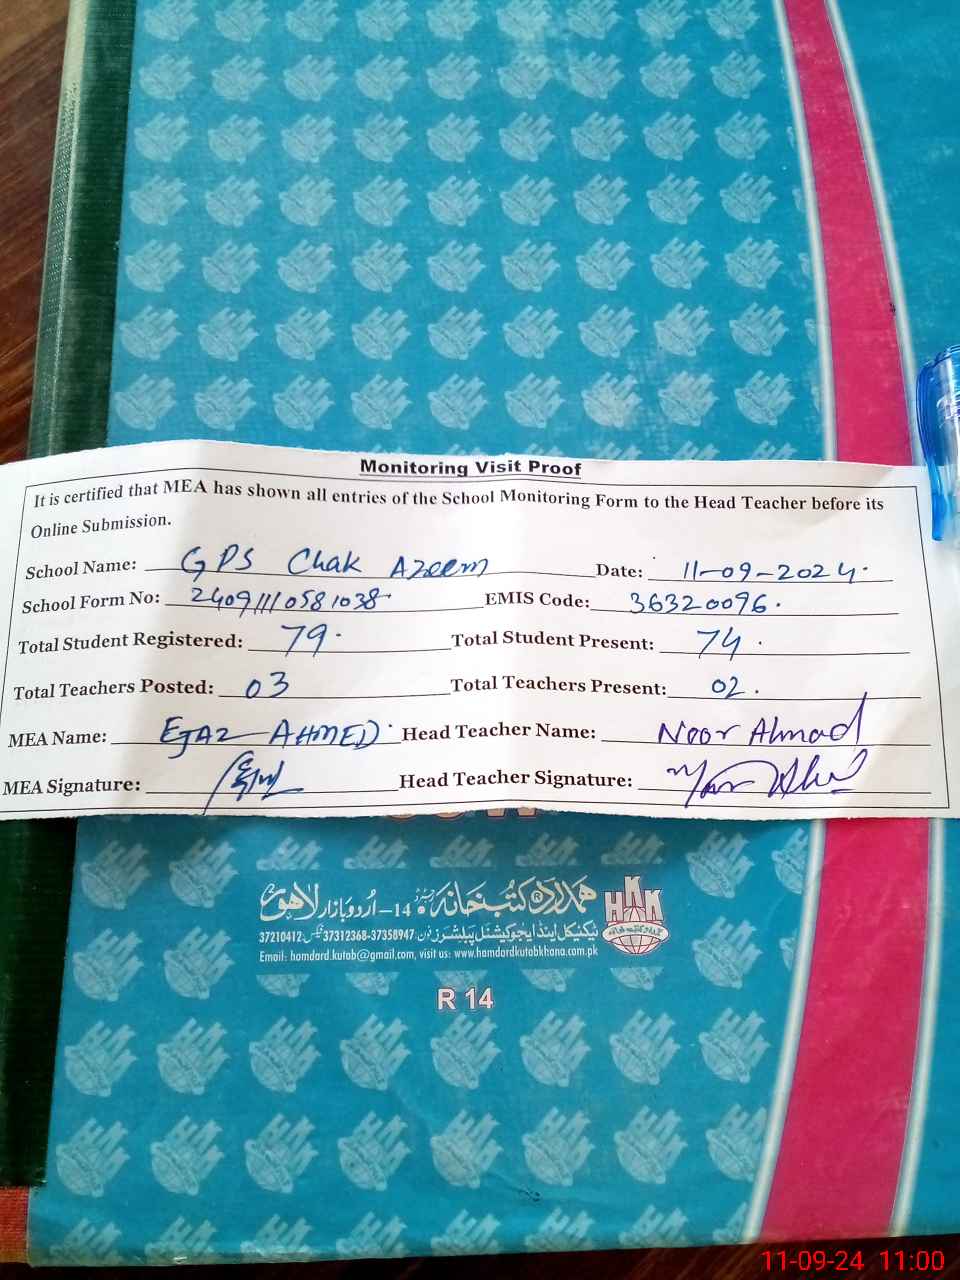 Monitoring Visit Proof
It is certified that MEA has shown all entries of the School Monitoring Form to the Head Teacher before its
Online Submission.
School Name: GPS Chak Azeem Date: 11-09-2024.
School Form No: 24091110581038. EMIS Code: 36320096.
Total Student Registered: 79. Total Student Present: 74.
Total Teachers Posted: 03 Total Teachers Present: 02.
MEA Name: EJAZ AHMED. Head Teacher Name: Noor Ahmad
MEA Signature: Head Teacher Signature:
ہمدرد کتب خانہ 14-اُردو بازار لاہور
HKK
ٹیکنیکل اینڈ ایجوکیشنل پبلشرز فون: 37312368-37358947 فیکس: 37210412
Email: hamdard.kutab@gmail.com, visit us: www.hamdardkutabkhana.com.pk
R 14
11-09-24 11:00